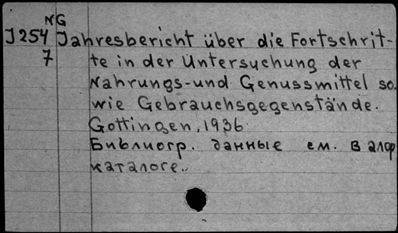 NG
J254 Jahresbericht über die Fortschrit-
7 te in der Untersuchung der
Nahrungs-und Genussmittel so.
wie Gebrauchsgegenstände.
Gottingen, 1936
Библиогр. данные см. в алф
каталоге..